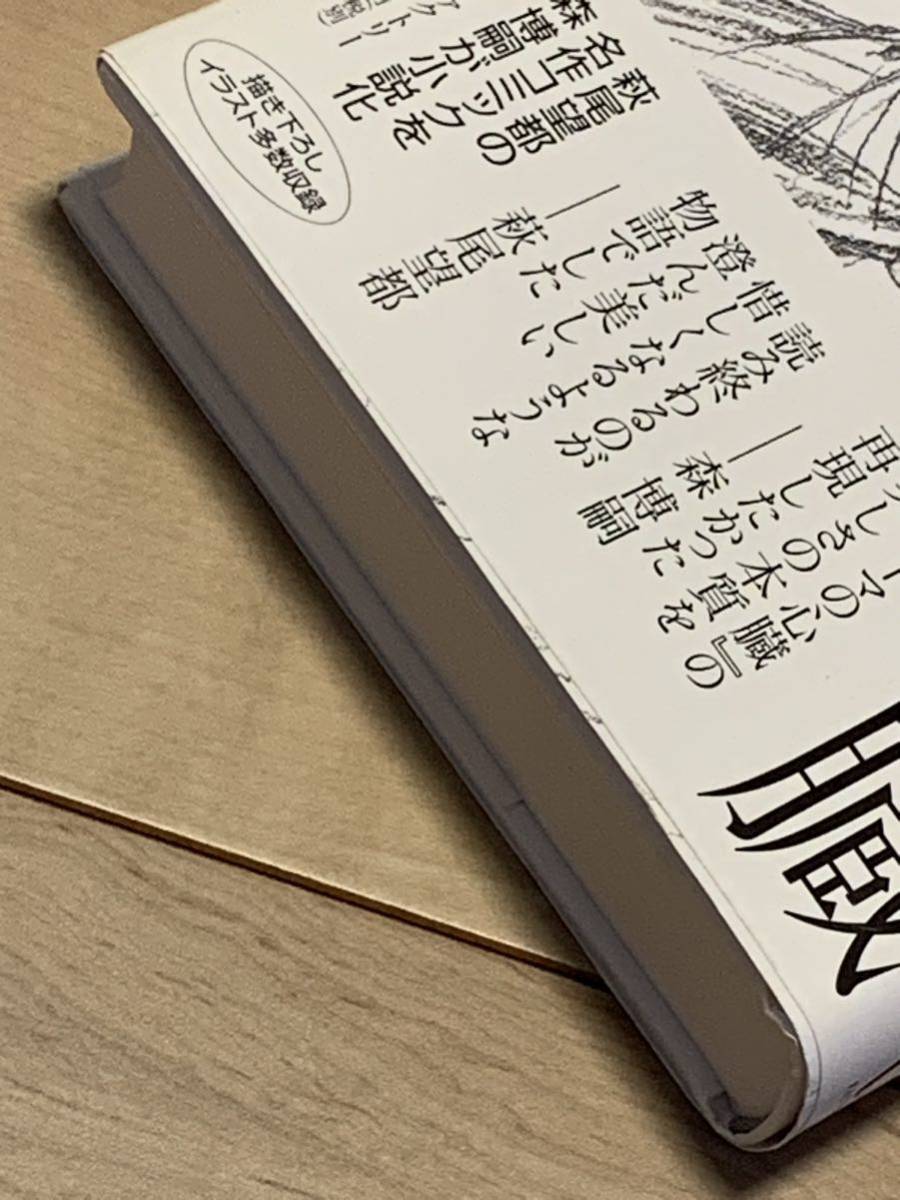 臓
ーマの心臓』の
しさの本質を
再現したかった
——森 博嗣
読み終わるのが
惜しくなるような
澄んだ美しい
物語でした
——萩尾望都
萩尾望都の
名作コミックを
森博嗣が小説化
クトリー
税別)
描き下ろし
イラスト多数収録